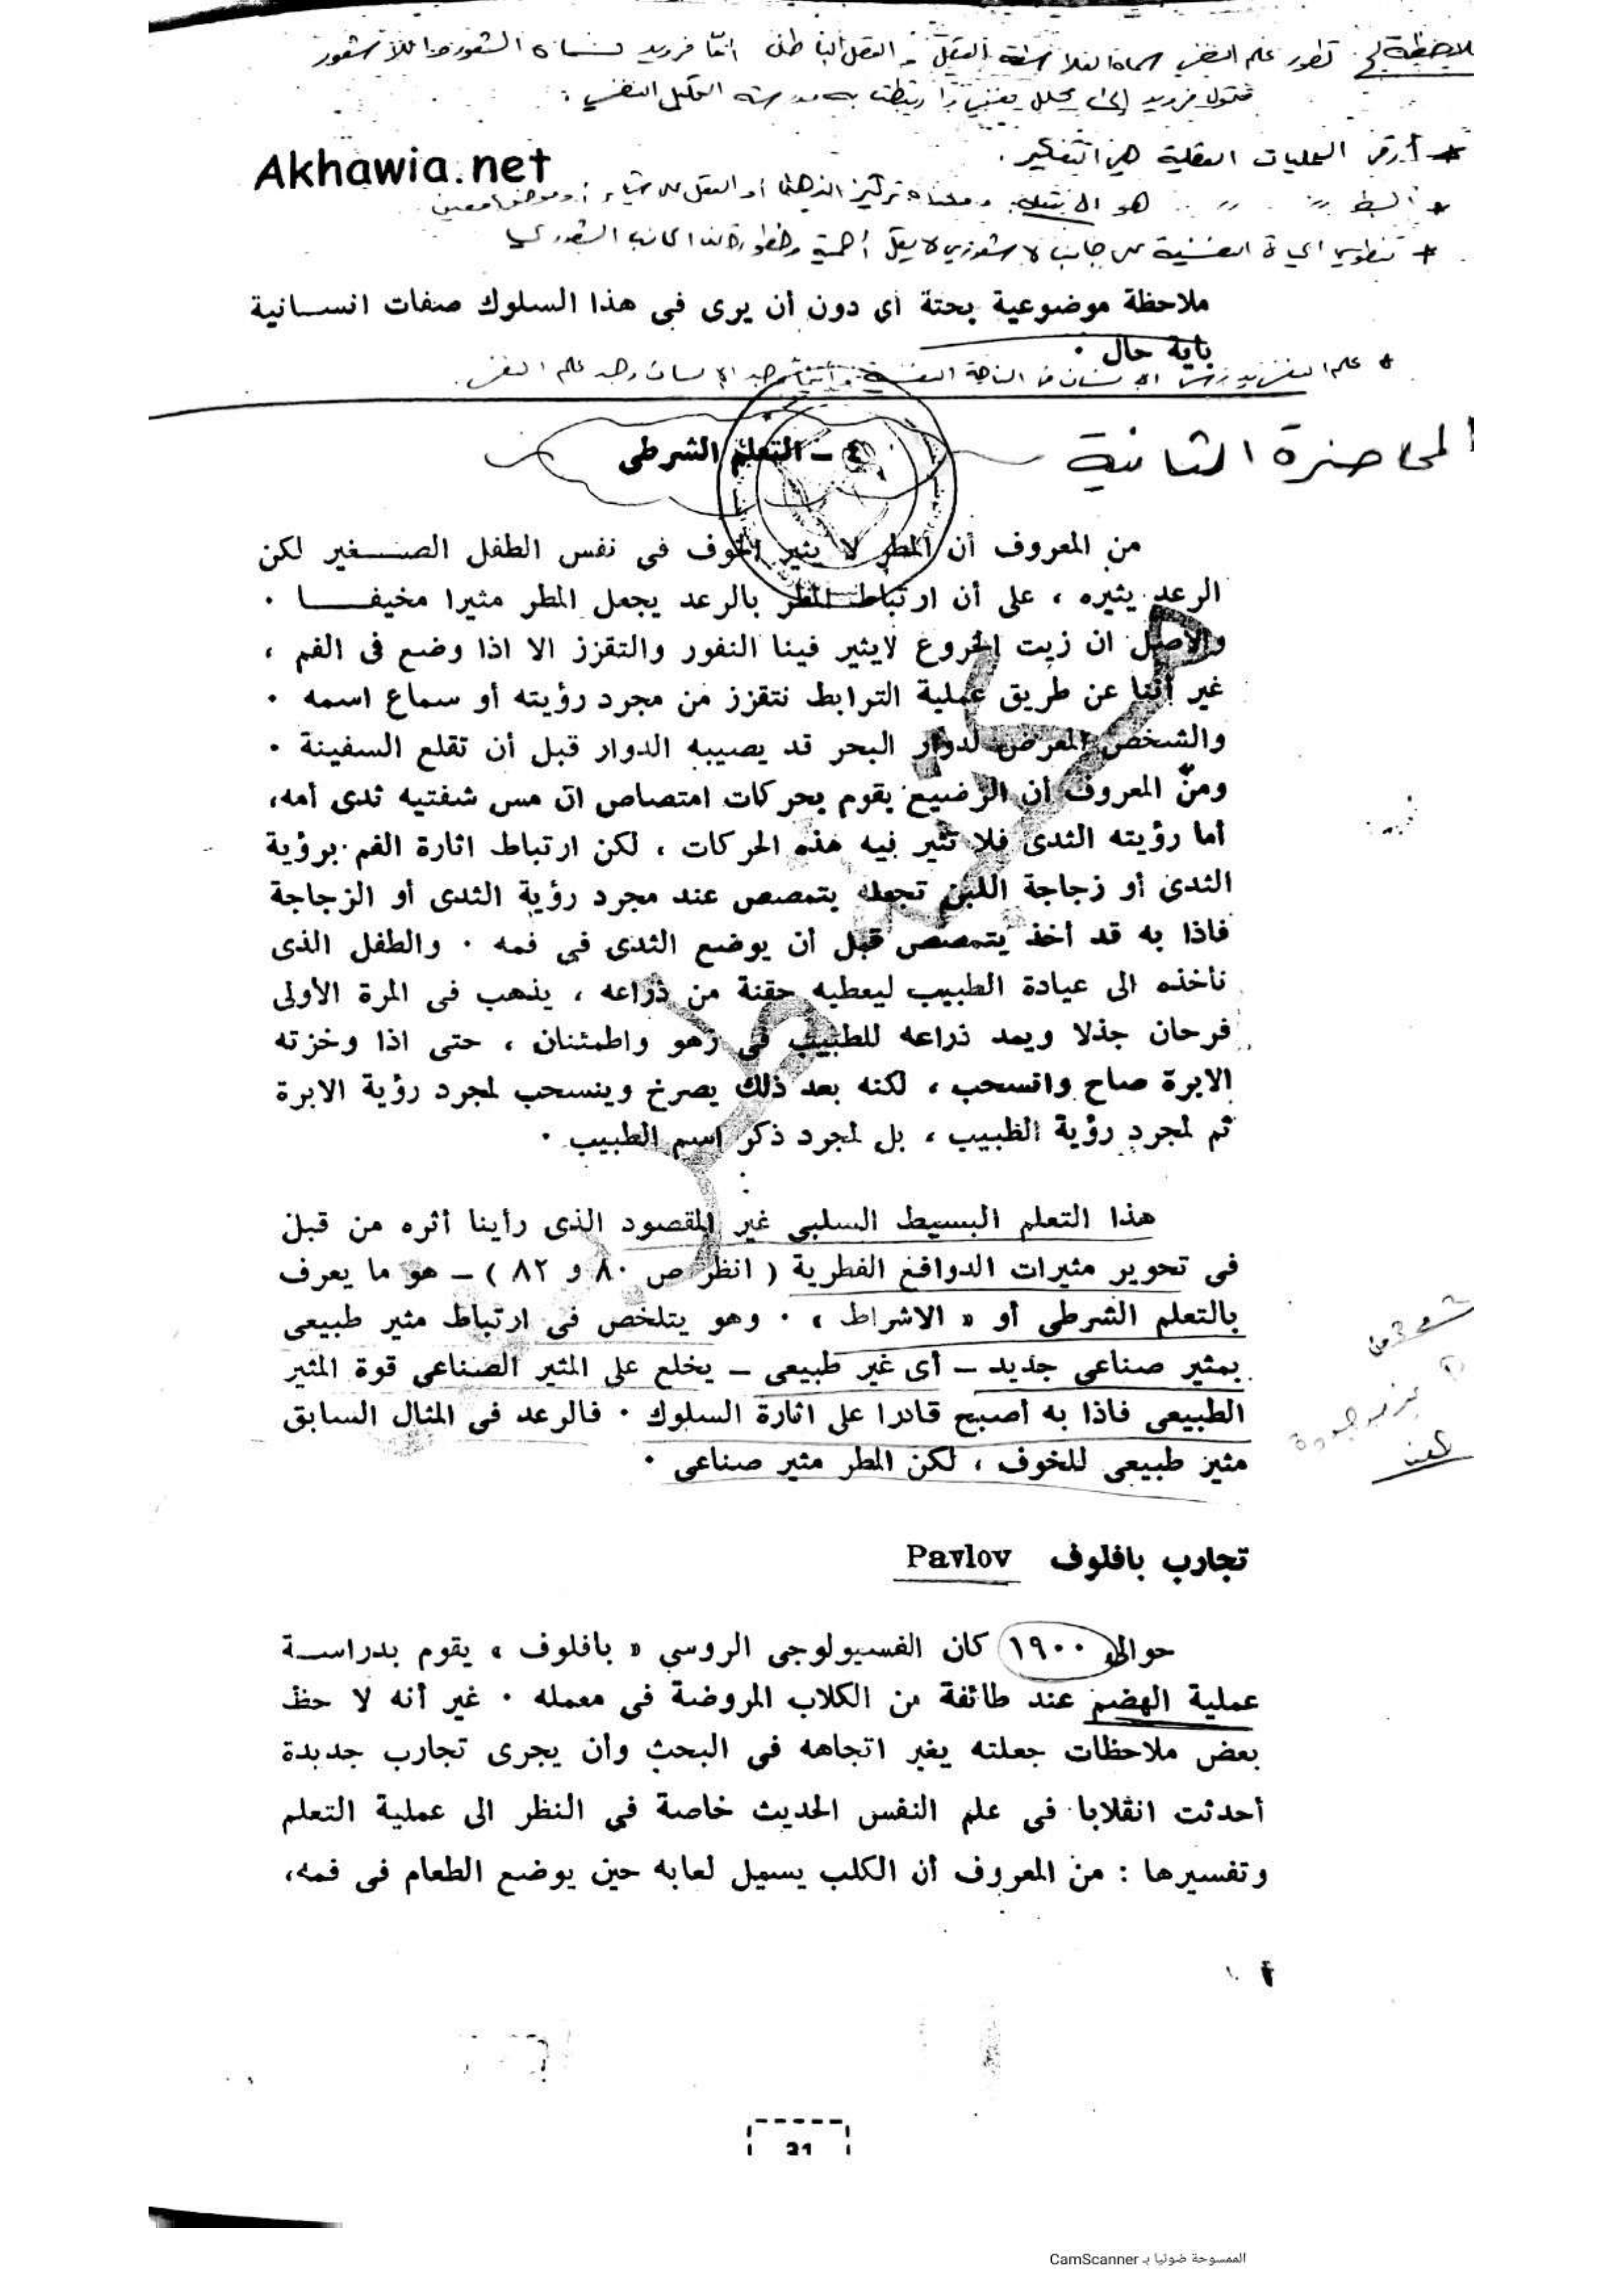 ملاحظة
Akhawia.net
* أرقى العمليات العقلية هي التفكير .
ملاحظة موضوعية بحتة أى دون أن يرى فى هذا السلوك صفات انسانية
باية حال .
المحاضرة الثانية
٤ – التعلم الشرطى
من المعروف أن المطر لا يثير الخوف فى نفس الطفل الصغير لكن
الرعد يثيره ، على أن ارتباط المطر بالرعد يجعل المطر مثيرا مخيفا .
والأصل ان زيت الخروع لايثير فينا النفور والتقزز الا اذا وضع فى الفم ،
غير أننا عن طريق عملية الترابط نتقزز من مجرد رؤيته أو سماع اسمه .
والشخص المعرض لدوار البحر قد يصيبه الدوار قبل أن تقلع السفينة .
ومن المعروف أن الرضيع يقوم بحركات امتصاص ان مس شفتيه ثدى أمه،
أما رؤيته الثدى فلا تثير فيه هذه الحركات ، لكن ارتباط اثارة الفم برؤية
الثدى أو زجاجة اللبن تجعله يتمصص عند مجرد رؤية الثدى أو الزجاجة
فاذا به قد أخذ يتمصص قبل أن يوضع الثدى فى فمه . والطفل الذى
نأخذه الى عيادة الطبيب ليعطيه حقنة من ذراعه ، يذهب فى المرة الأولى
فرحان جذلا ويمد ذراعه للطبيب فى زهو واطمئنان ، حتى اذا وخزته
الابرة صاح وانسحب ، لكنه بعد ذلك يصرخ وينسحب لمجرد رؤية الابرة
ثم لمجرد رؤية الطبيب ، بل لمجرد ذكر اسم الطبيب .
هذا التعلم البسيط السلبى غير المقصود الذى رأينا أثره من قبل
فى تحوير مثيرات الدوافع الفطرية ( انظر ص ٨٠ و ٨٢ ) – هو ما يعرف
بالتعلم الشرطى أو « الاشراط » . وهو يتلخص فى ارتباط مثير طبيعى
بمثير صناعى جديد – أى غير طبيعى – يخلع على المثير الصناعى قوة المثير
الطبيعى فاذا به أصبح قادرا على اثارة السلوك . فالرعد فى المثال السابق
مثير طبيعى للخوف ، لكن المطر مثير صناعى .
تجارب بافلوف Pavlov
حوالى ١٩٠٠ كان الفسيولوجى الروسي « بافلوف » يقوم بدراسة
عملية الهضم عند طائفة من الكلاب المروضة فى معمله . غير أنه لا حظ
بعض ملاحظات جعلته يغير اتجاهه فى البحث وأن يجرى تجارب جديدة
أحدثت انقلابا فى علم النفس الحديث خاصة فى النظر الى عملية التعلم
وتفسيرها : من المعروف أن الكلب يسيل لعابه حين يوضع الطعام فى فمه،
21
الممسوحة ضوئيا بـ CamScanner